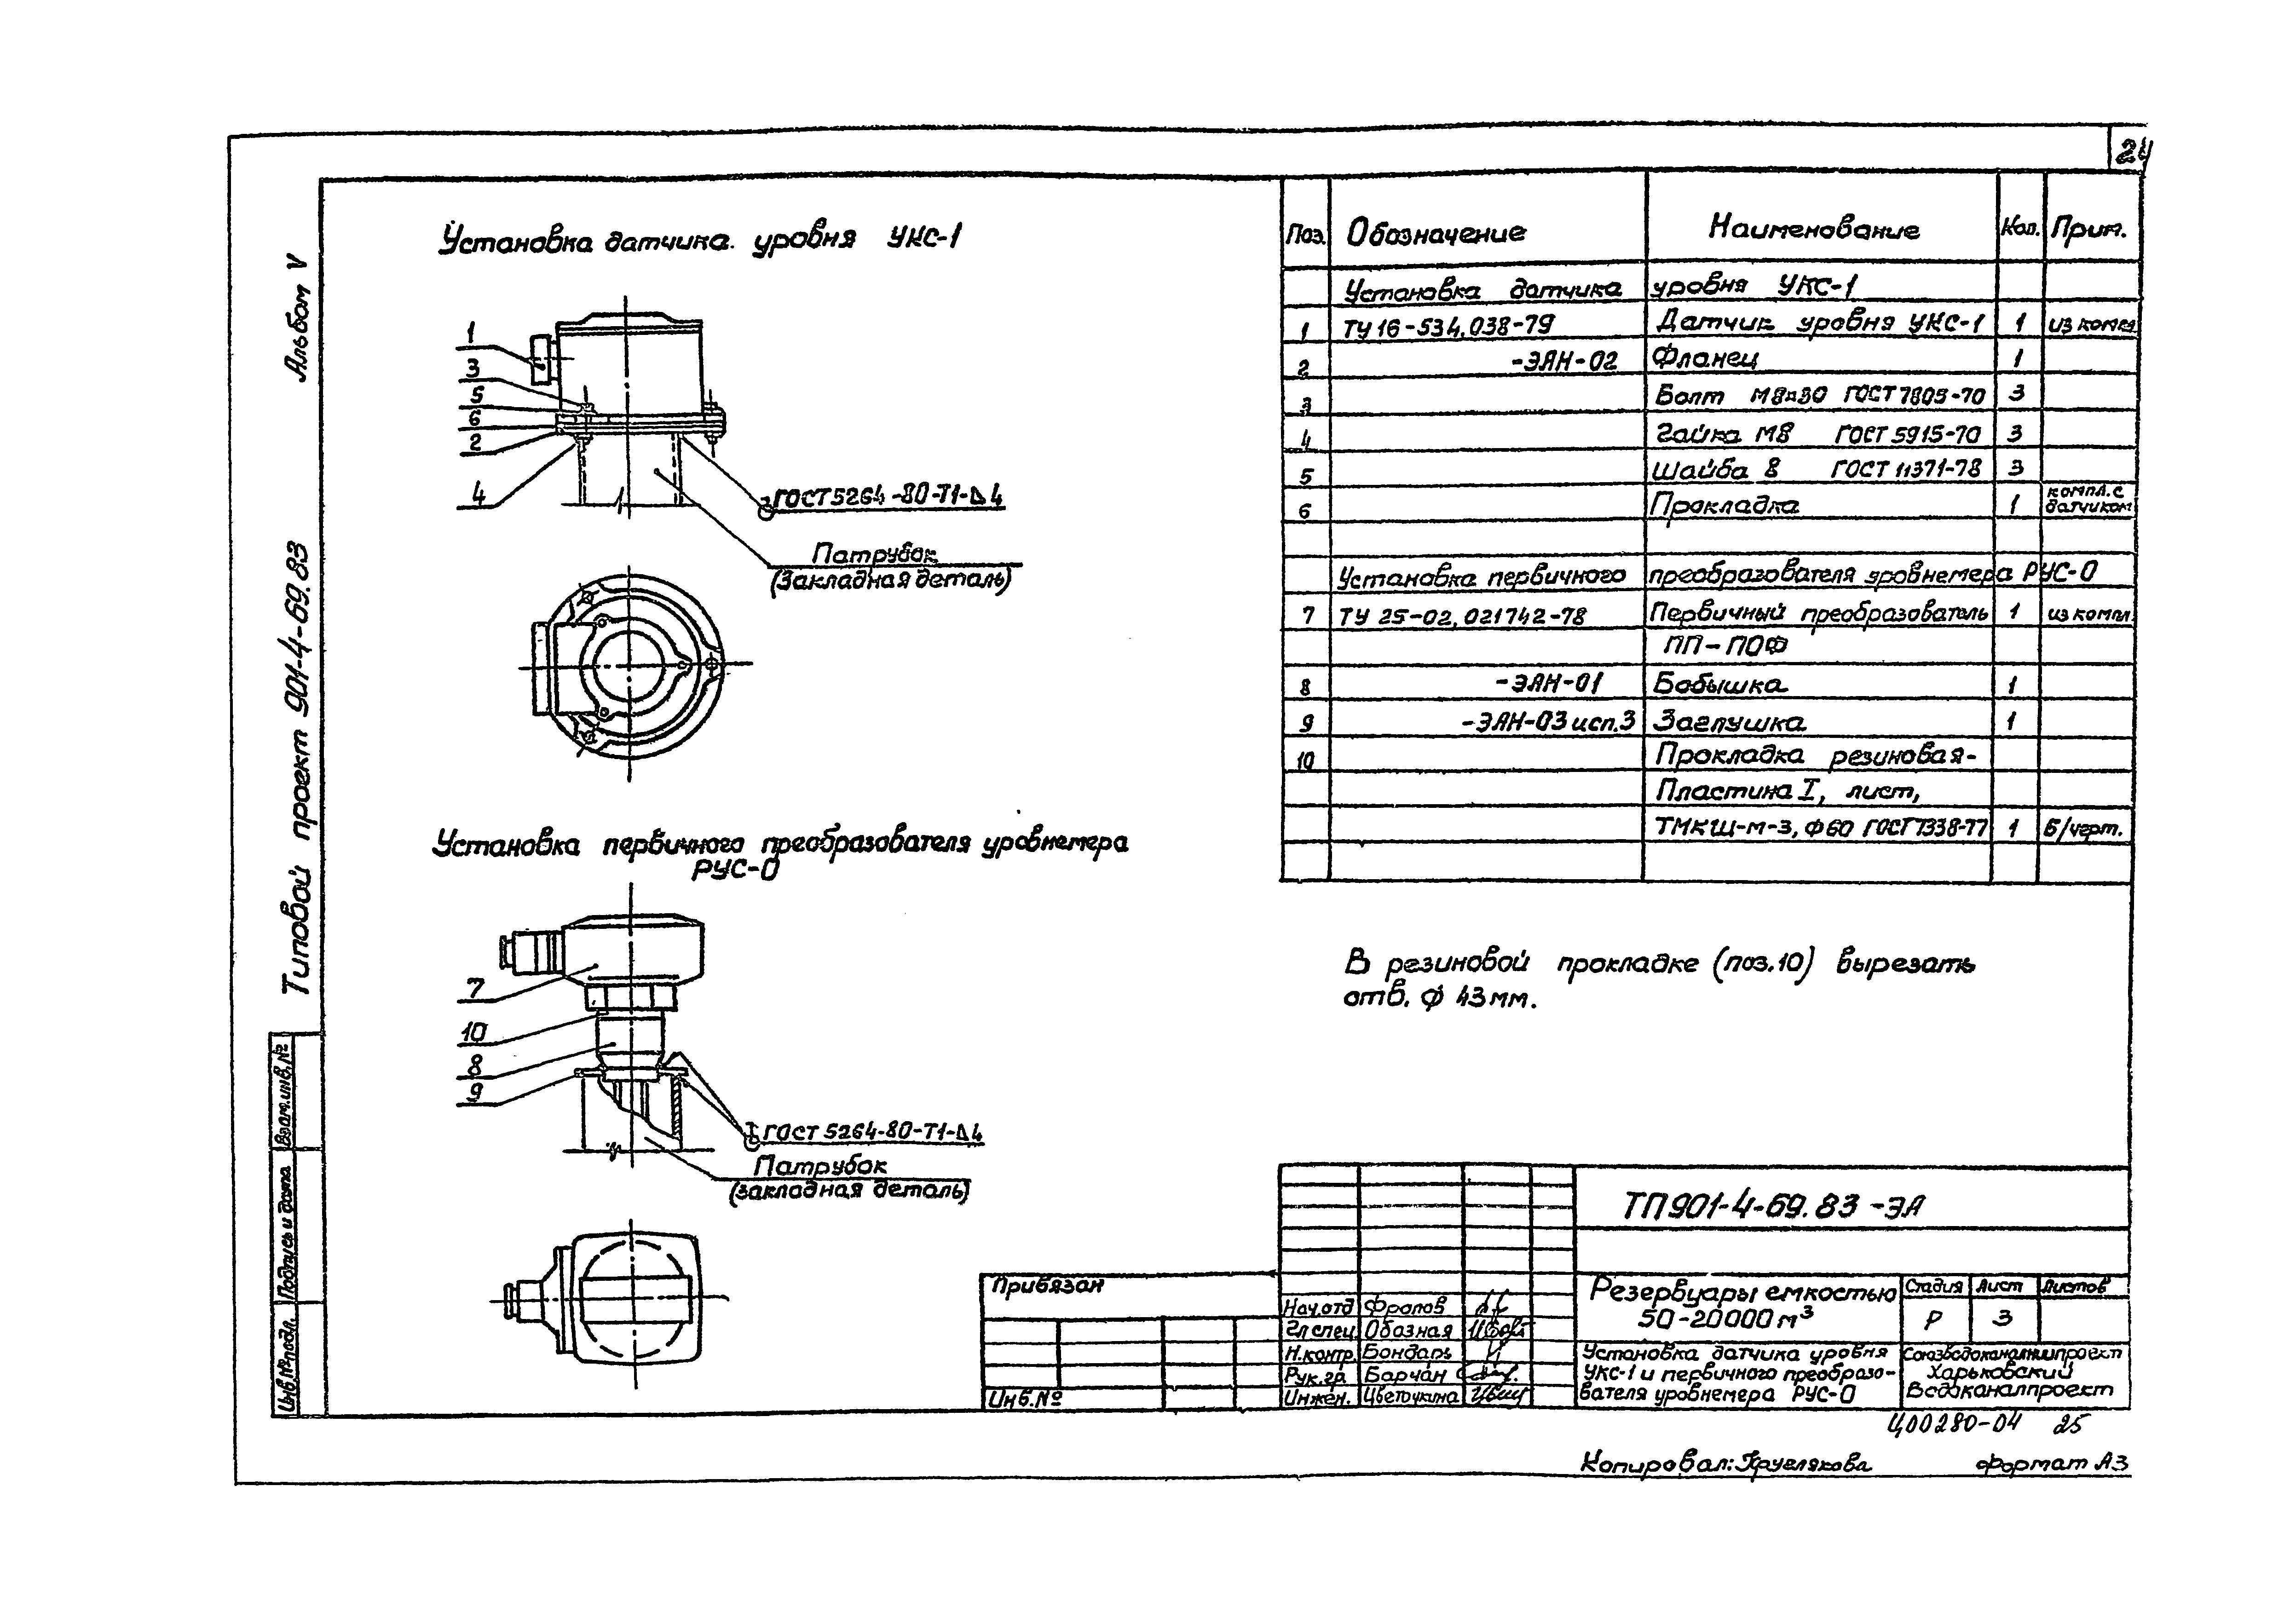 24
Альбом V
Типовой проект 901-4-69.83
Взам.инв.№
Подпись и дата
Инв.№подл.
Установка датчика уровня УКС-1
1
3
5
6
2
4
ГОСТ 5264-80-Т1-Δ4
Патрубок
(Закладная деталь)
Установка первичного преобразователя уровнемера
РУС-0
7
10
8
9
ГОСТ 5264-80-Т1-Δ4
Патрубок
(закладная деталь)
Поз. Обозначение Наименование Кол. Прим.
Установка датчика уровня УКС-1
1 ТУ 16-534.038-79 Датчик уровня УКС-1 1 из компл
2 -ЭАН-02 Фланец 1
3 Болт М8х30 ГОСТ 7805-70 3
4 Гайка М8 ГОСТ 5915-70 3
5 Шайба 8 ГОСТ 11371-78 3
6 Прокладка 1 компл. с
датчиком
Установка первичного преобразователя уровнемера РУС-0
7 ТУ 25-02.021742-78 Первичный преобразователь 1 из компл.
ПП-ПОФ
8 -ЭАН-01 Бобышка 1
9 -ЭАН-03 исп.3 Заглушка 1
10 Прокладка резиновая-
Пластина I, лист,
ТМКЩ-м-3, Ф60 ГОСТ 7338-77 1 Б/черт.
В резиновой прокладке (поз.10) вырезать
отв. ф 43мм.
ТП901-4-69.83 -ЭА
Привязан
Инв.№
Нач.отд Фролов
Гл спец. Обозная
Н.контр. Бондарь
Рук.гр. Барчан
Инжен. Цветочкина
Резервуары емкостью
50-20000 м³
Стадия Лист Листов
Р 3
Установка датчика уровня
УКС-1 и первичного преобразо-
вателя уровнемера РУС-0
Союзводоканалниипроект
Харьковский
Водоканалпроект
Ц00280-04 25
Копировал: Круглякова формат А3